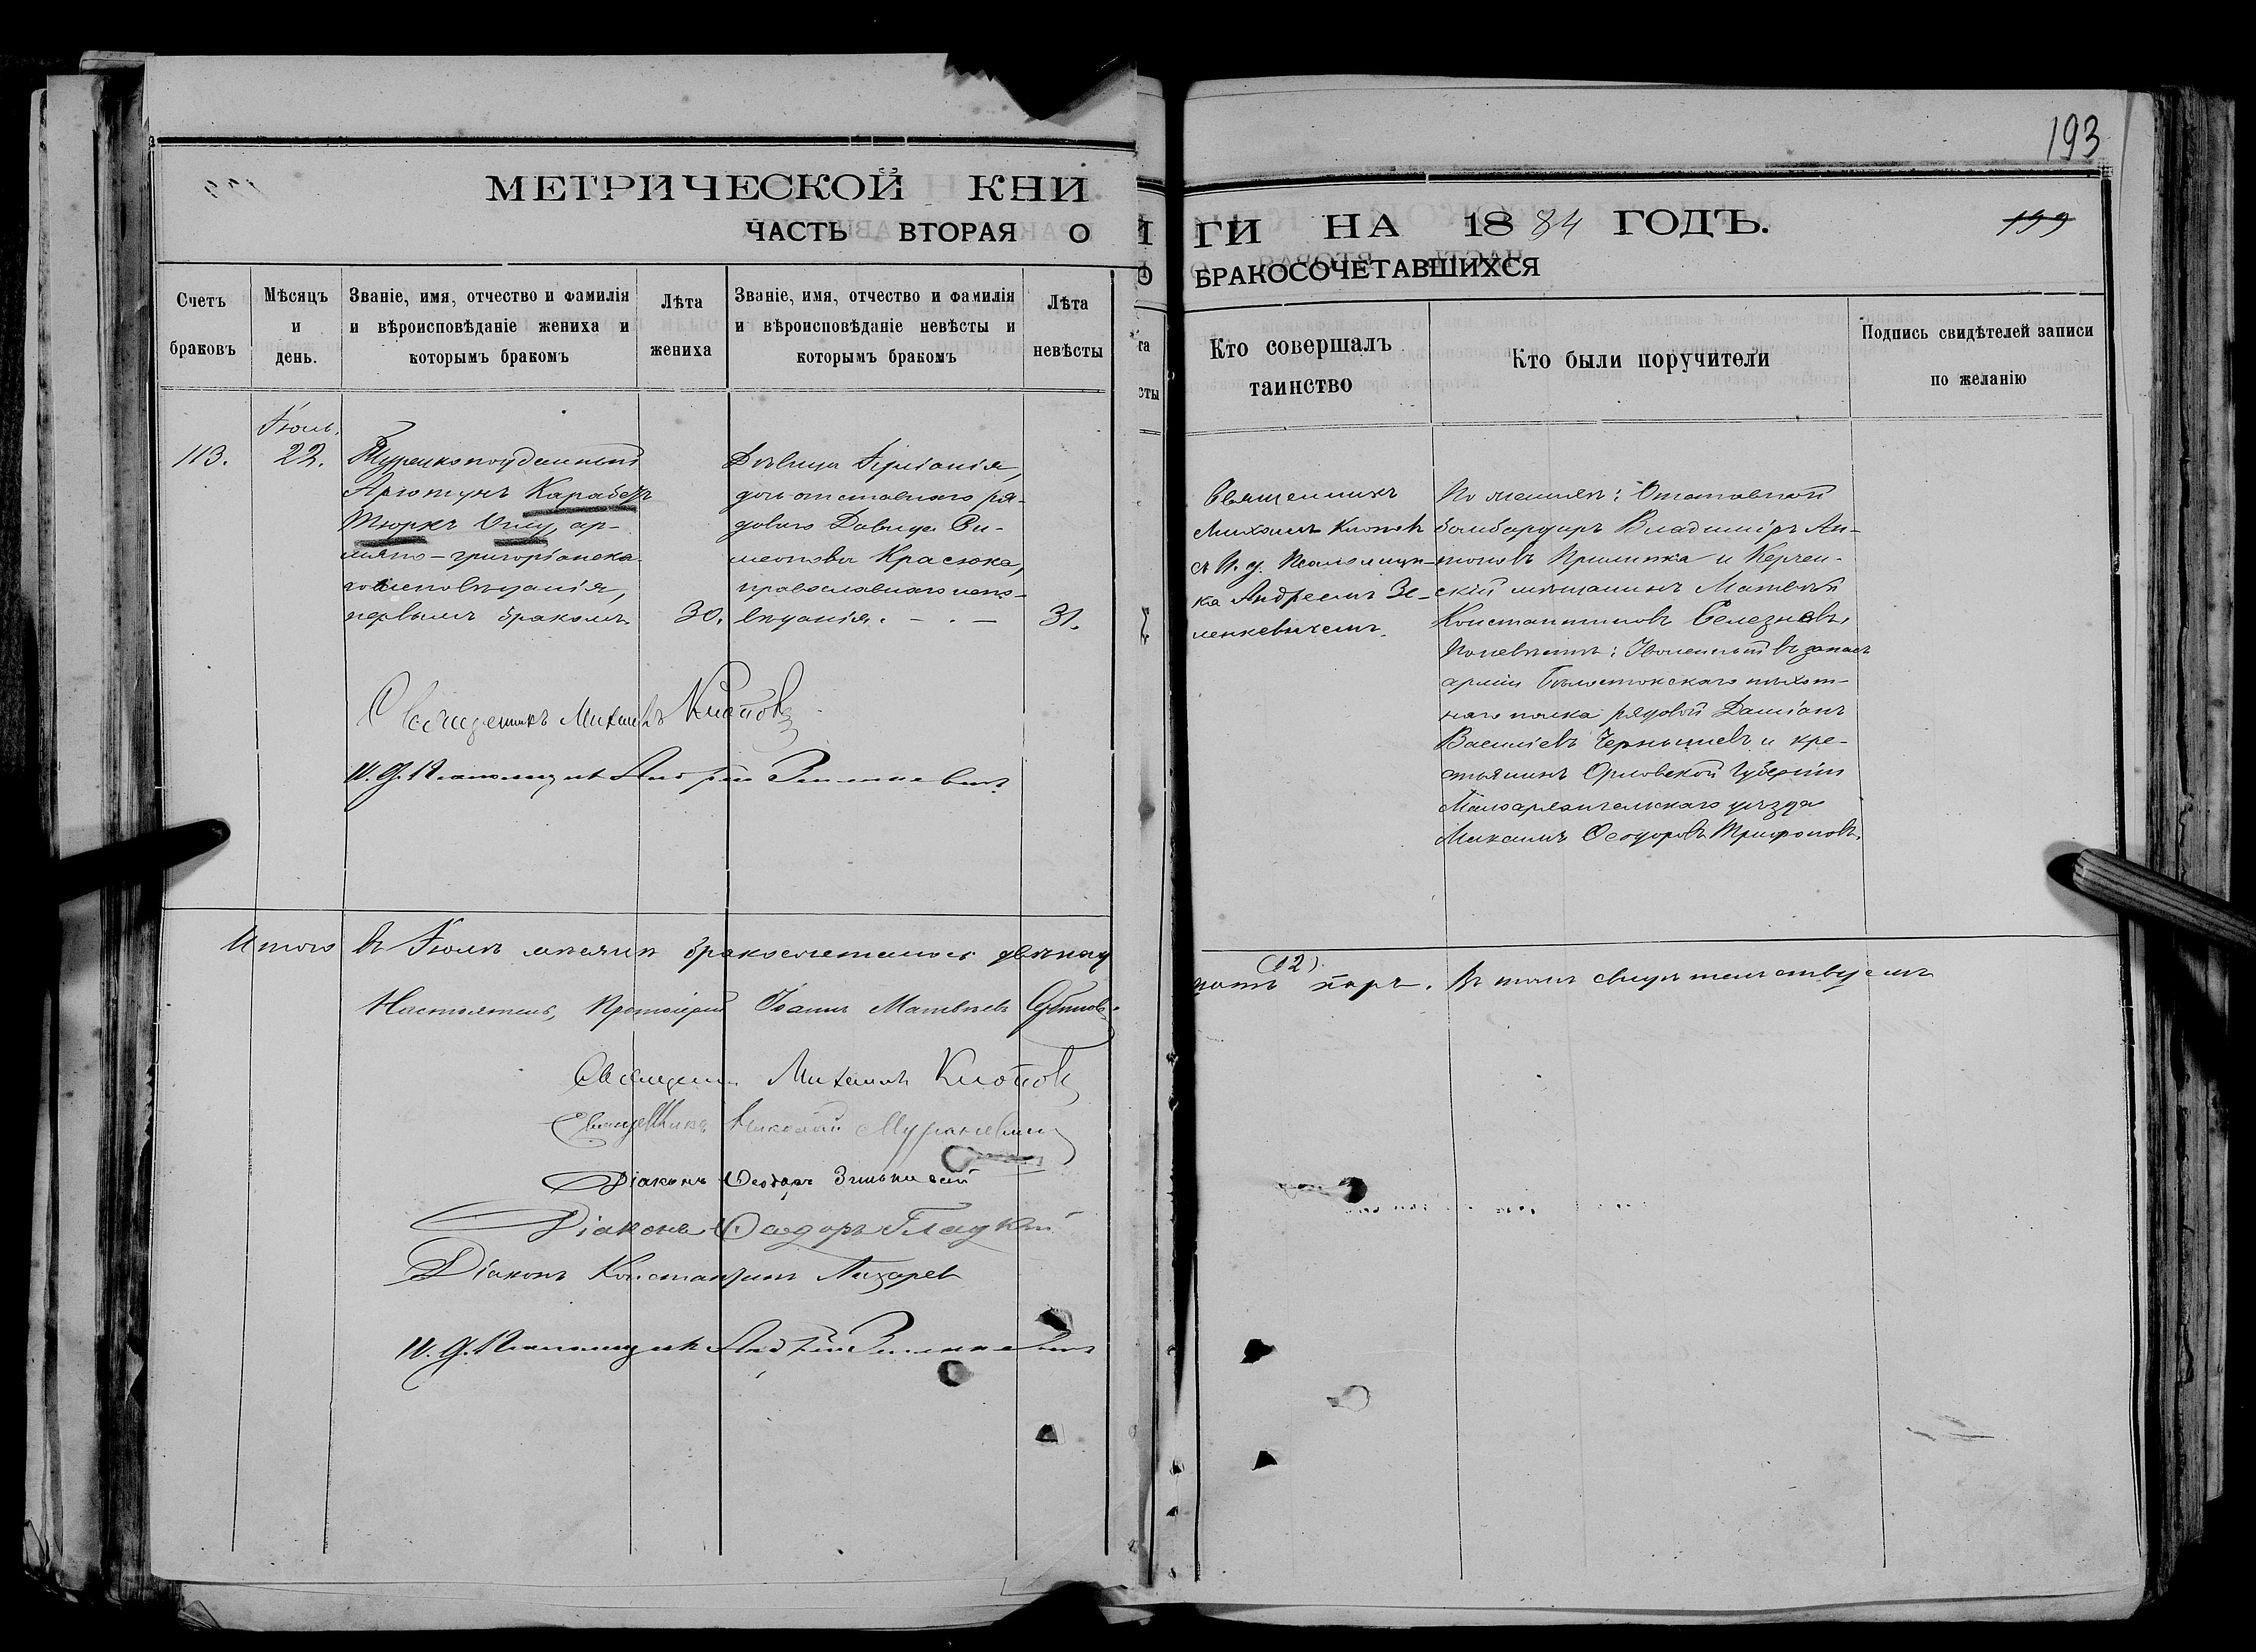 193
МЕТРИЧЕСКОЙ КНИ
ЧАСТЬ ВТОРАЯ О
ГИ НА 1884 ГОДЪ.
199
БРАКОСОЧЕТАВШИХСЯ
Счетъ браковъ
Мѣсяцъ и день.
Званіе, имя, отчество и фамилія
и вѣроисповѣданіе жениха и
которымъ бракомъ
Лѣта жениха
Званіе, имя, отчество и фамилія
и вѣроисповѣданіе невѣсты и
которымъ бракомъ
Лѣта невѣсты
Кто совершалъ
таинство
Кто были поручители
Подпись свидѣтелей записи
по желанію
113.
Іюль.
22.
Турецкоподданный
Арютунъ Карабетъ
Тюркъ Оглу, ар-
мяно-григоріанска
го исповѣданія,
первымъ бракомъ.
30.
Дѣвица
дочь отставнаго ря-
доваго Давида Си-
меонова Красюка,
православнаго испо-
вѣданія.
31.
Священникъ
Михаилъ Клопов
съ И. д. Псаломщи-
ка Андреемъ Зе-
ленкевичемъ.
По женихѣ: Отставной
бомбардиръ Владиміръ Ан-
тоновъ Прилипка и Керчен-
скій мѣщанинъ Матвѣй
Константиновъ Селезневъ,
По невѣстѣ: Уволенный въ запасъ
арміи Бѣлостокскаго пѣхот-
наго полка рядовой Даміанъ
Василіевъ Чернышевъ и кре-
стьянинъ Орловской Губерніи
Малоархангельскаго уѣзда
Максимъ Ѳеодоровъ Трифоновъ.
Священникъ Михаилъ Клопов
И. д. Псаломщика Андрей Зеленкевичъ
Итого въ Іюлѣ мѣсяцѣ бракосочеталось двѣнад
цать (12) паръ. Въ томъ свидѣтельствуемъ
Настоятель, Протоіерей Іоаннъ Матвѣевъ
Священникъ Михаилъ Клопов
Священникъ Николай
Діаконъ Ѳеодоръ
Діаконъ Ѳеодоръ Гладкій
Діаконъ Константинъ
И. д. Псаломщика Андрей Зеленкевичъ